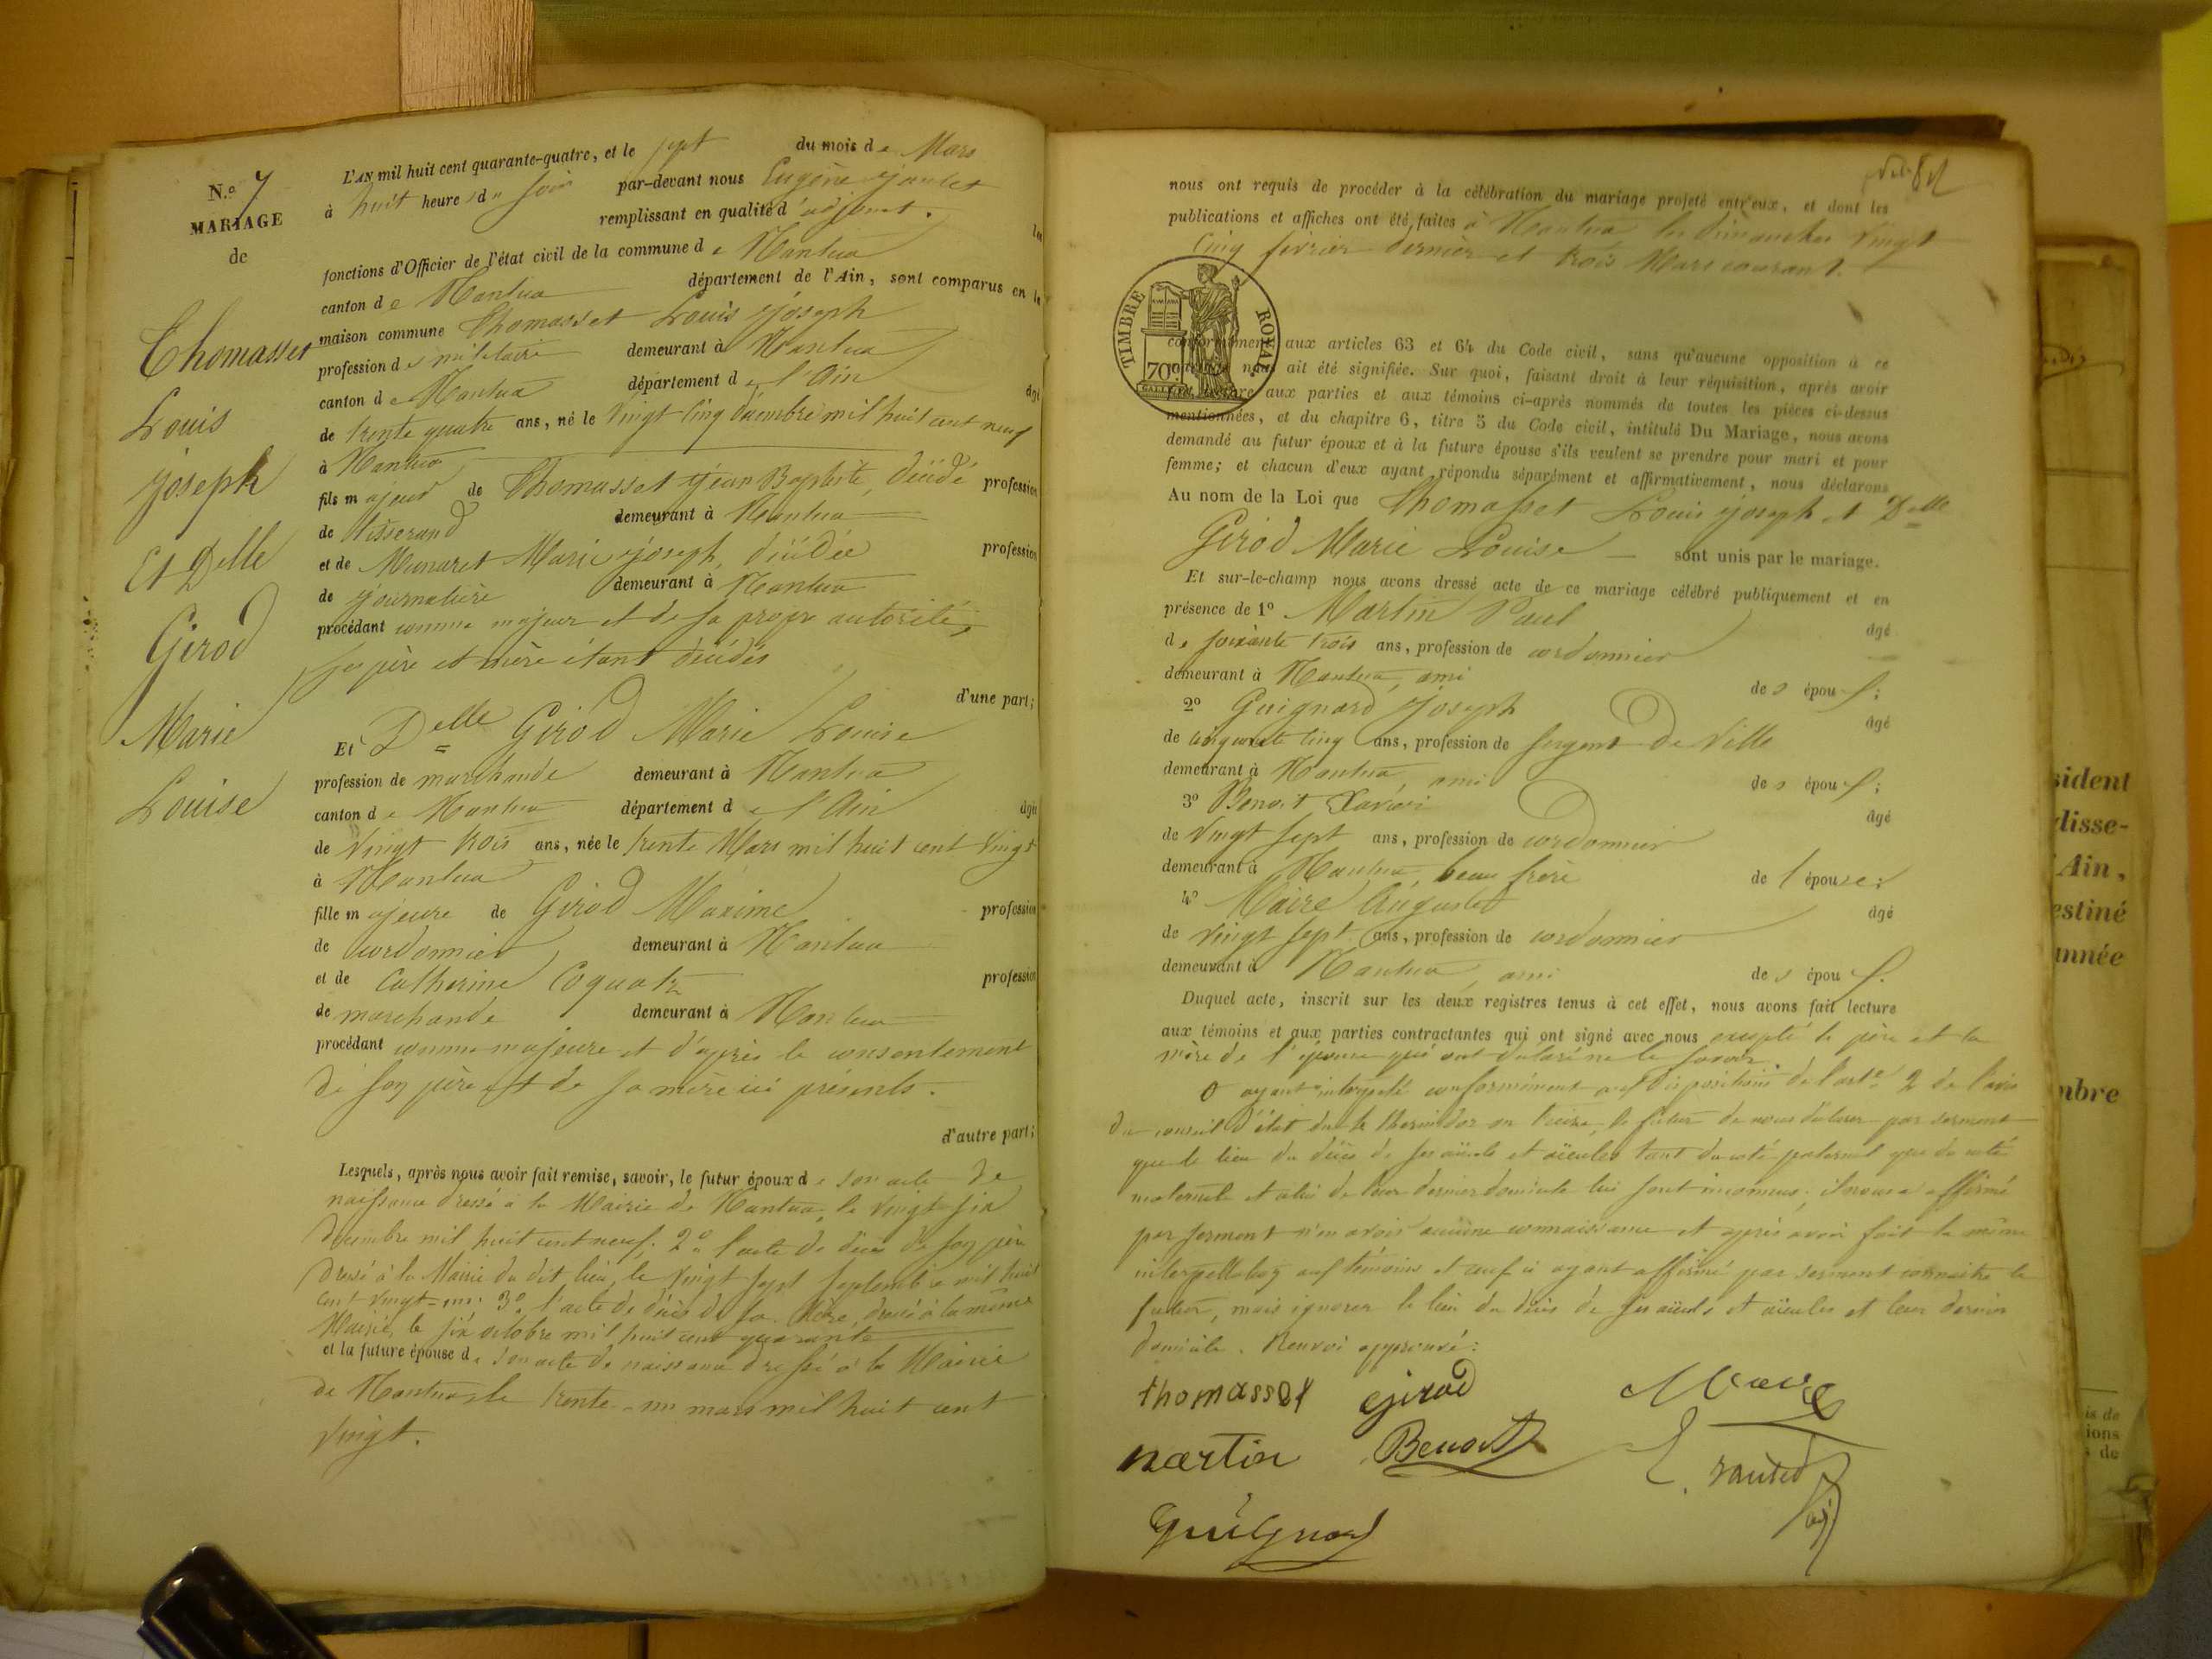 N.o 7
MARIAGE
de
Thomasset
Louis
joseph
Et Delle
Girod
Marie
Louise
L'AN mil huit cent quarante-quatre, et le sept du mois de Mars
à huit heures du soir par-devant nous Eugène
remplissant en qualité d'adjoint. les
fonctions d'Officier de l'état civil de la commune de Nantua
canton de Nantua département de l'Ain, sont comparus en la
maison commune Thomasset Louis joseph
profession de militaire demeurant à Nantua
canton de Nantua département de l'Ain âgé
de trente quatre ans, né le vingt cinq décembre mil huit cent neuf
à Nantua
fils majeur de Thomasset jean Baptiste, décédé profession
de tisserand demeurant à Nantua
et de Munaret Marie joseph, décédée profession
de journalière demeurant à Nantua
procédant comme majeur et de sa propre autorité,
ses père et mère étant décédés
d'une part;
Et Delle Girod Marie Louise
profession de marchande demeurant à Nantua
canton de Nantua département de l'Ain âgée
de vingt trois ans, née le trente Mars mil huit cent vingt
à Nantua
fille majeure de Girod Maxime profession
de cordonnier demeurant à Nantua
et de Catherine Coquatz profession
de marchande demeurant à Nantua
procédant comme majeure et d'après le consentement
de son père et de sa mère ici présents.
d'autre part;
Lesquels, après nous avoir fait remise, savoir, le futur époux de son acte de
naissance dressé à la Mairie de Nantua, le vingt six
décembre mil huit cent neuf; 2o l'acte de décès de son père
dressé à la Mairie du dit lieu, le vingt sept septembre mil huit
cent vingt-un; 3o l'acte de décès de sa mère, dressé à la même
Mairie, le six octobre mil huit cent quarante
et la future épouse de son acte de naissance dressé à la Mairie
de Nantua, le trente-un mars mil huit cent
vingt.
nous ont requis de procéder à la célébration du mariage projeté entr'eux, et dont les
publications et affiches ont été faites à Nantua les dimanches vingt
cinq février dernier et trois Mars courant.
TIMBRE ROYAL
70c
conformément aux articles 63 et 64 du Code civil, sans qu'aucune opposition à ce
mariage nous ait été signifiée. Sur quoi, faisant droit à leur réquisition, après avoir
fait lecture aux parties et aux témoins ci-après nommés de toutes les pièces ci-dessus
mentionnées, et du chapitre 6, titre 5 du Code civil, intitulé Du Mariage, nous avons
demandé au futur époux et à la future épouse s'ils veulent se prendre pour mari et pour
femme; et chacun d'eux ayant répondu séparément et affirmativement, nous déclarons
Au nom de la Loi que Thomasset Louis joseph et Delle
Girod Marie Louise sont unis par le mariage.
Et sur-le-champ nous avons dressé acte de ce mariage célébré publiquement et en
présence de 1o Martin Paul âgé
de soixante trois ans, profession de cordonnier
demeurant à Nantua, ami des époux;
2o Guignard joseph âgé
de cinquante cinq ans, profession de sergent de ville
demeurant à Nantua, ami des époux;
3o Benoit Xavier âgé
de vingt sept ans, profession de cordonnier
demeurant à Nantua, beau frère de l'épouse;
4o Maire Auguste âgé
de vingt sept ans, profession de cordonnier
demeurant à Nantua, ami des époux.
Duquel acte, inscrit sur les deux registres tenus à cet effet, nous avons fait lecture
aux témoins et aux parties contractantes qui ont signé avec nous excepté le père et la
mère de l'épouse qui ont déclaré ne le savoir.
ayant interpelé conformément aux dispositions de l'arte 2 de l'avis
du conseil d'état du 4 thermidor an treize, le futur de nous déclarer par serment
que le lieu du décès de ses aïeuls et aïeules tant du coté paternel que du coté
maternel et celui de leur dernier domicile lui sont inconnus; il nous a affirmé
par serment n'en avoir aucune connaissance et après avoir fait la même
interpellation aux témoins et ceux ci ayant affirmé par serment connaitre le
futur, mais ignorer le lieu du décès de ses aïeuls et aïeules et leur dernier
domicile. Renvoi approuvé:
thomasset girod Maire
martin Benoit
guignard
sident
disse-
Ain,
estiné
année
mbre
is de
ions
s de